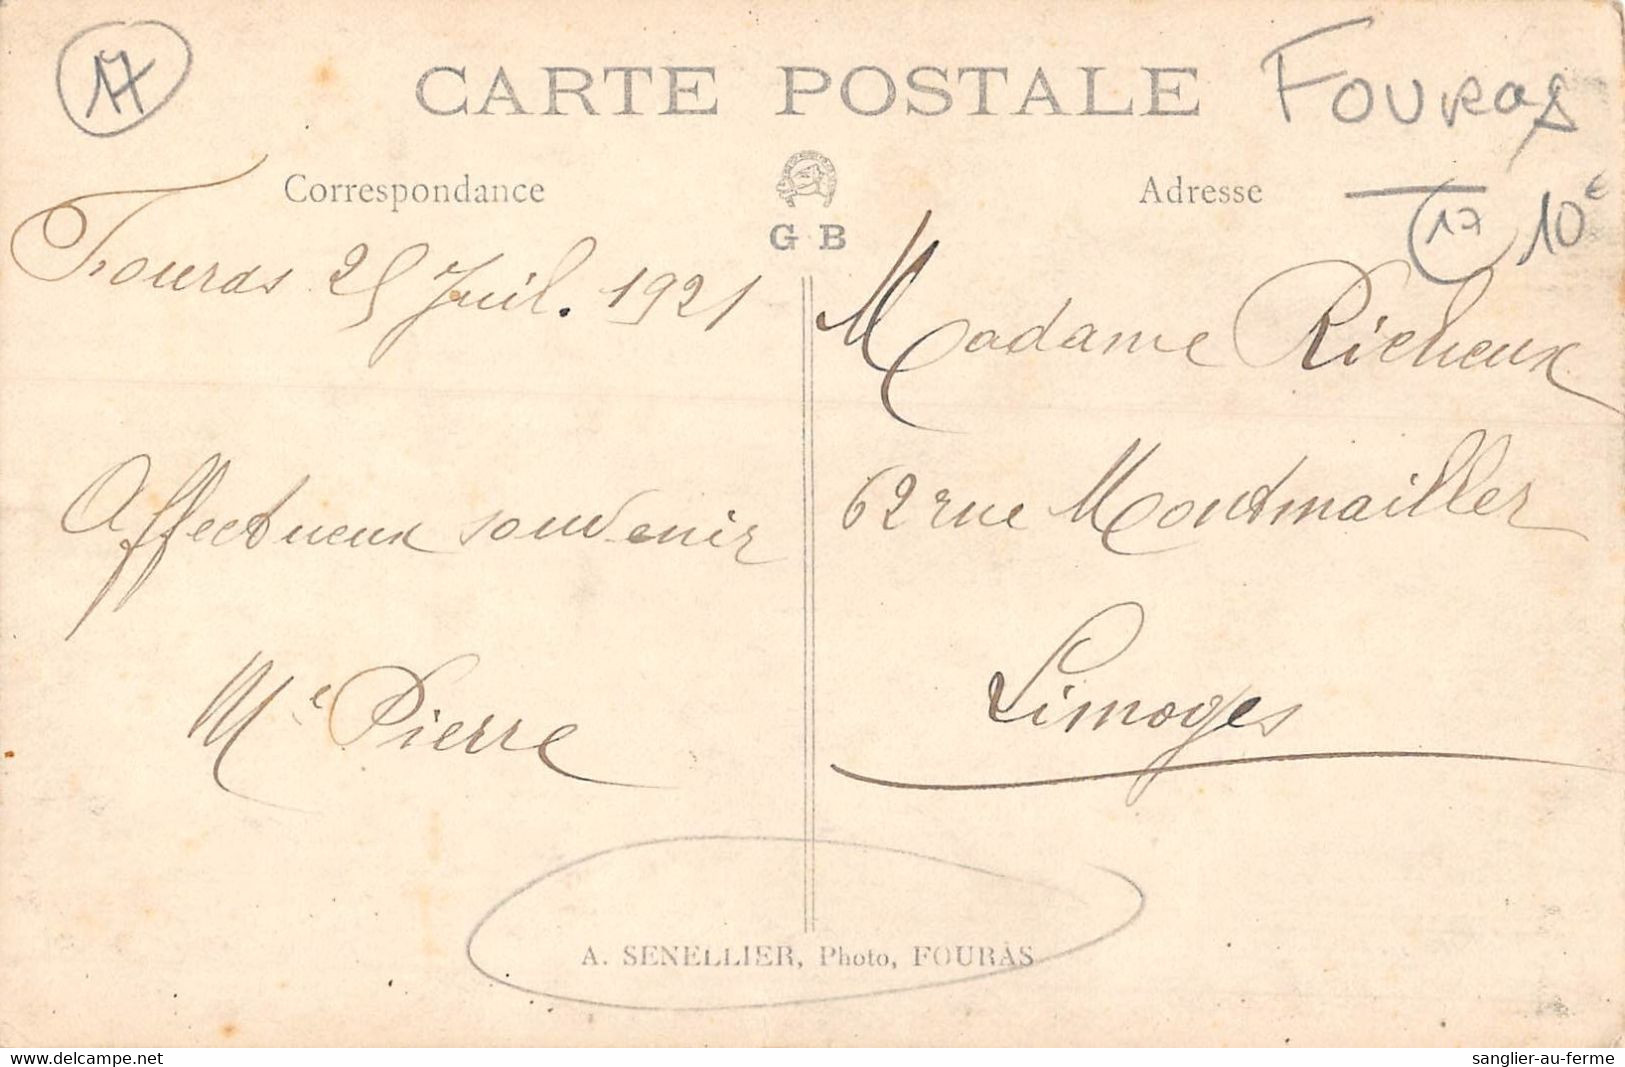 17
CARTE POSTALE
FOURAS
Correspondance
Adresse
17
10€
G B
Fouras 25 Juil. 1921
Madame Richeux
62 rue Montmailler
Affectueux souvenir
Limoges
Me Pierre
A. SENELLIER, Photo, FOURAS
www.delcampe.net
sanglier-au-ferme